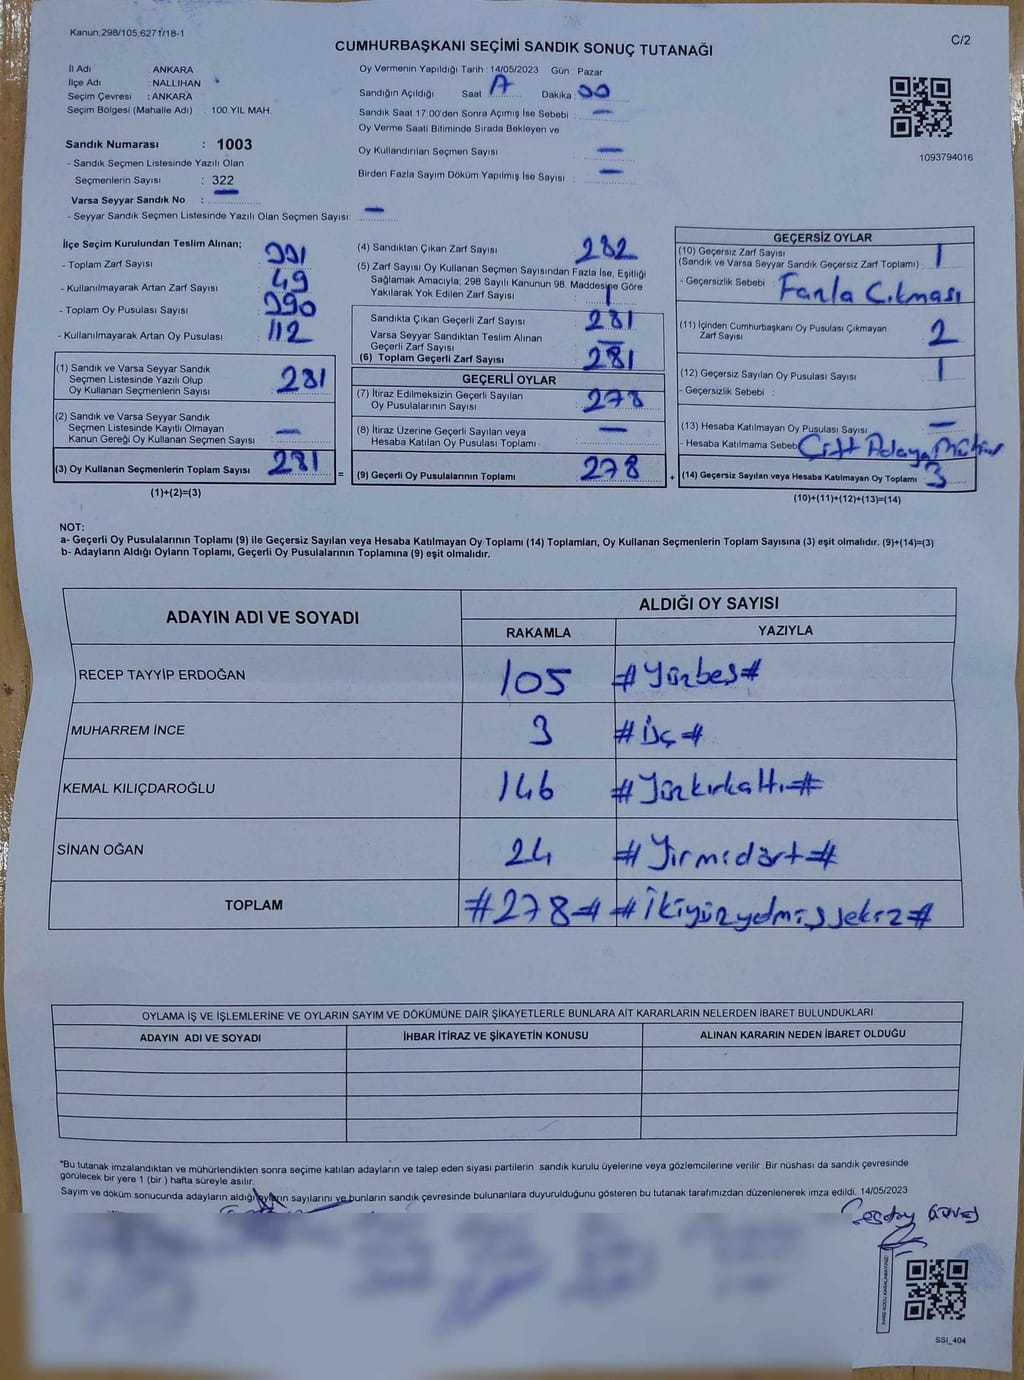 Kanun;298/105,6271/18-1
C/2
CUMHURBAŞKANI SEÇİMİ SANDIK SONUÇ TUTANAĞI
İl Adı ANKARA
İlçe Adı : NALLIHAN
Seçim Çevresi : ANKARA
Seçim Bölgesi (Mahalle Adı) : 100.YIL MAH.
Sandık Numarası : 1003
- Sandık Seçmen Listesinde Yazılı Olan
Seçmenlerin Sayısı : 322
Varsa Seyyar Sandık No : —
- Seyyar Sandık Seçmen Listesinde Yazılı Olan Seçmen Sayısı: —
Oy Vermenin Yapıldığı Tarih : 14/05/2023 Gün : Pazar
Sandığın Açıldığı Saat Dakika : 00
Sandık Saat 17:00'den Sonra Açımış İse Sebebi : —
Oy Verme Saati Bitiminde Sırada Bekleyen ve
Oy Kullandırılan Seçmen Sayısı : —
Birden Fazla Sayım Döküm Yapılmış İse Sayısı : —
1093794016
İlçe Seçim Kurulundan Teslim Alınan;
- Toplam Zarf Sayısı : 331
- Kullanılmayarak Artan Zarf Sayısı : 49
- Toplam Oy Pusulası Sayısı : 390
- Kullanılmayarak Artan Oy Pusulası : 112
(1) Sandık ve Varsa Seyyar Sandık
Seçmen Listesinde Yazılı Olup
Oy Kullanan Seçmenlerin Sayısı : 281
(2) Sandık ve Varsa Seyyar Sandık
Seçmen Listesinde Kayıtlı Olmayan
Kanun Gereği Oy Kullanan Seçmen Sayısı : —
(3) Oy Kullanan Seçmenlerin Toplam Sayısı : 281
(1)+(2)=(3)
(4) Sandıktan Çıkan Zarf Sayısı : 282
(5) Zarf Sayısı Oy Kullanan Seçmen Sayısından Fazla İse, Eşitliği
Sağlamak Amacıyla; 298 Sayılı Kanunun 98. Maddesine Göre
Yakılarak Yok Edilen Zarf Sayısı : 1
Sandıkta Çıkan Geçerli Zarf Sayısı : 281
Varsa Seyyar Sandıktan Teslim Alınan
Geçerli Zarf Sayısı : —
(6) Toplam Geçerli Zarf Sayısı : 281
GEÇERLİ OYLAR
(7) İtiraz Edilmeksizin Geçerli Sayılan
Oy Pusulalarının Sayısı : 278
(8) İtiraz Üzerine Geçerli Sayılan veya
Hesaba Katılan Oy Pusulası Toplamı : —
= (9) Geçerli Oy Pusulalarının Toplamı : 278
GEÇERSİZ OYLAR
(10) Geçersiz Zarf Sayısı : 1
(Sandık ve Varsa Seyyar Sandık Geçersiz Zarf Toplamı)
- Geçersizlik Sebebi : Fazla Çıkması
(11) İçinden Cumhurbaşkanı Oy Pusulası Çıkmayan
Zarf Sayısı : 2
(12) Geçersiz Sayılan Oy Pusulası Sayısı : 1
- Geçersizlik Sebebi :
(13) Hesaba Katılmayan Oy Pusulası Sayısı : —
- Hesaba Katılmama Sebebi Çift Adaya Mühür
+ (14) Geçersiz Sayılan veya Hesaba Katılmayan Oy Toplamı : 3
(10)+(11)+(12)+(13)=(14)
NOT:
a- Geçerli Oy Pusulalarının Toplamı (9) ile Geçersiz Sayılan veya Hesaba Katılmayan Oy Toplamı (14) Toplamları, Oy Kullanan Seçmenlerin Toplam Sayısına (3) eşit olmalıdır. (9)+(14)=(3)
b- Adayların Aldığı Oyların Toplamı, Geçerli Oy Pusulalarının Toplamına (9) eşit olmalıdır.
ADAYIN ADI VE SOYADI ALDIĞI OY SAYISI
RAKAMLA YAZIYLA
RECEP TAYYİP ERDOĞAN 105 #Yüzbeş#
MUHARREM İNCE 3 #Üç#
KEMAL KILIÇDAROĞLU 146 #Yüzkırkaltı#
SİNAN OĞAN 24 #Yirmidört#
TOPLAM #278# #İkiyüzyetmişsekiz#
OYLAMA İŞ VE İŞLEMLERİNE VE OYLARIN SAYIM VE DÖKÜMÜNE DAİR ŞİKAYETLERLE BUNLARA AİT KARARLARIN NELERDEN İBARET BULUNDUKLARI
ADAYIN ADI VE SOYADI İHBAR İTİRAZ VE ŞİKAYETİN KONUSU ALINAN KARARIN NEDEN İBARET OLDUĞU
*Bu tutanak imzalandıktan ve mühürlendikten sonra seçime katılan adayların ve talep eden siyasi partilerin sandık kurulu üyelerine veya gözlemcilerine verilir .Bir nüshası da sandık çevresinde
görülecek bir yere 1 (bir ) hafta süreyle asılır.
Sayım ve döküm sonucunda adayların aldığı oyların sayılarını ve bunların sandık çevresinde bulunanlara duyurulduğunu gösteren bu tutanak tarafımızdan düzenlenerek imza edildi. 14/05/2023
SSI_404